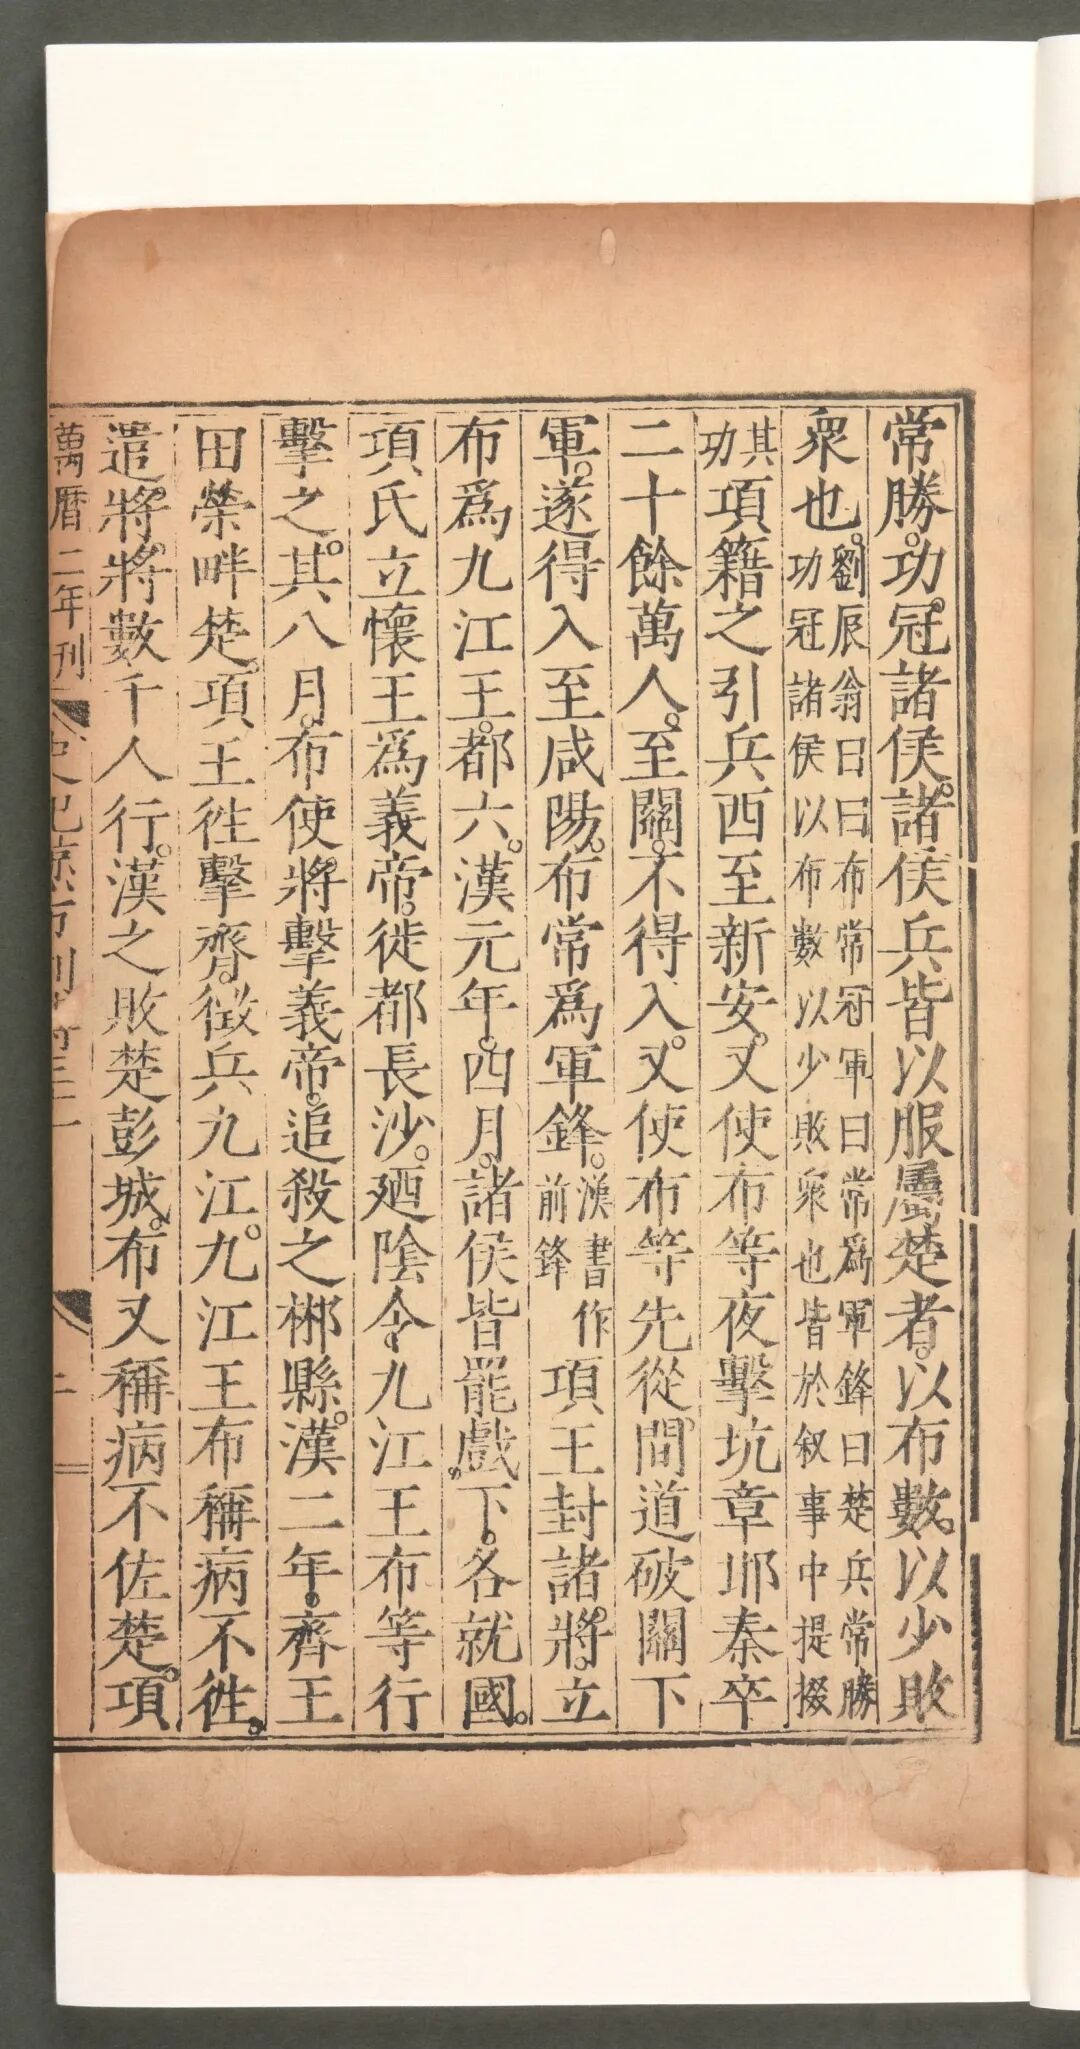 常勝。功冠諸侯。諸侯兵皆以服屬楚者。以布數。以少敗
衆也。劉辰翁曰曰布常冠軍曰常爲軍鋒曰楚兵常勝
功冠諸侯以布數以少敗衆也皆於叙事中提掇
其
功項籍之引兵西至新安。又使布等夜擊坑章邯秦卒
二十餘萬人。至關。不得入。又使布等先從間道破關下
軍。遂得入至咸陽。布常爲軍鋒。漢書作
前鋒項王封諸將。立
布爲九江王。都六。漢元年。四月。諸侯皆罷戲下。各就國。
項氏立懷王爲義帝。徙都長沙。廼陰令九江王布等行
擊之。其八月。布使將擊義帝。追殺之郴縣。漢二年。齊王
田榮畔楚。項王徃擊齊。徵兵九江。九江王布稱病不徃。
遣將。將數千人行。漢之敗楚彭城。布又稱病不佐楚。項
萬曆二年刊
二